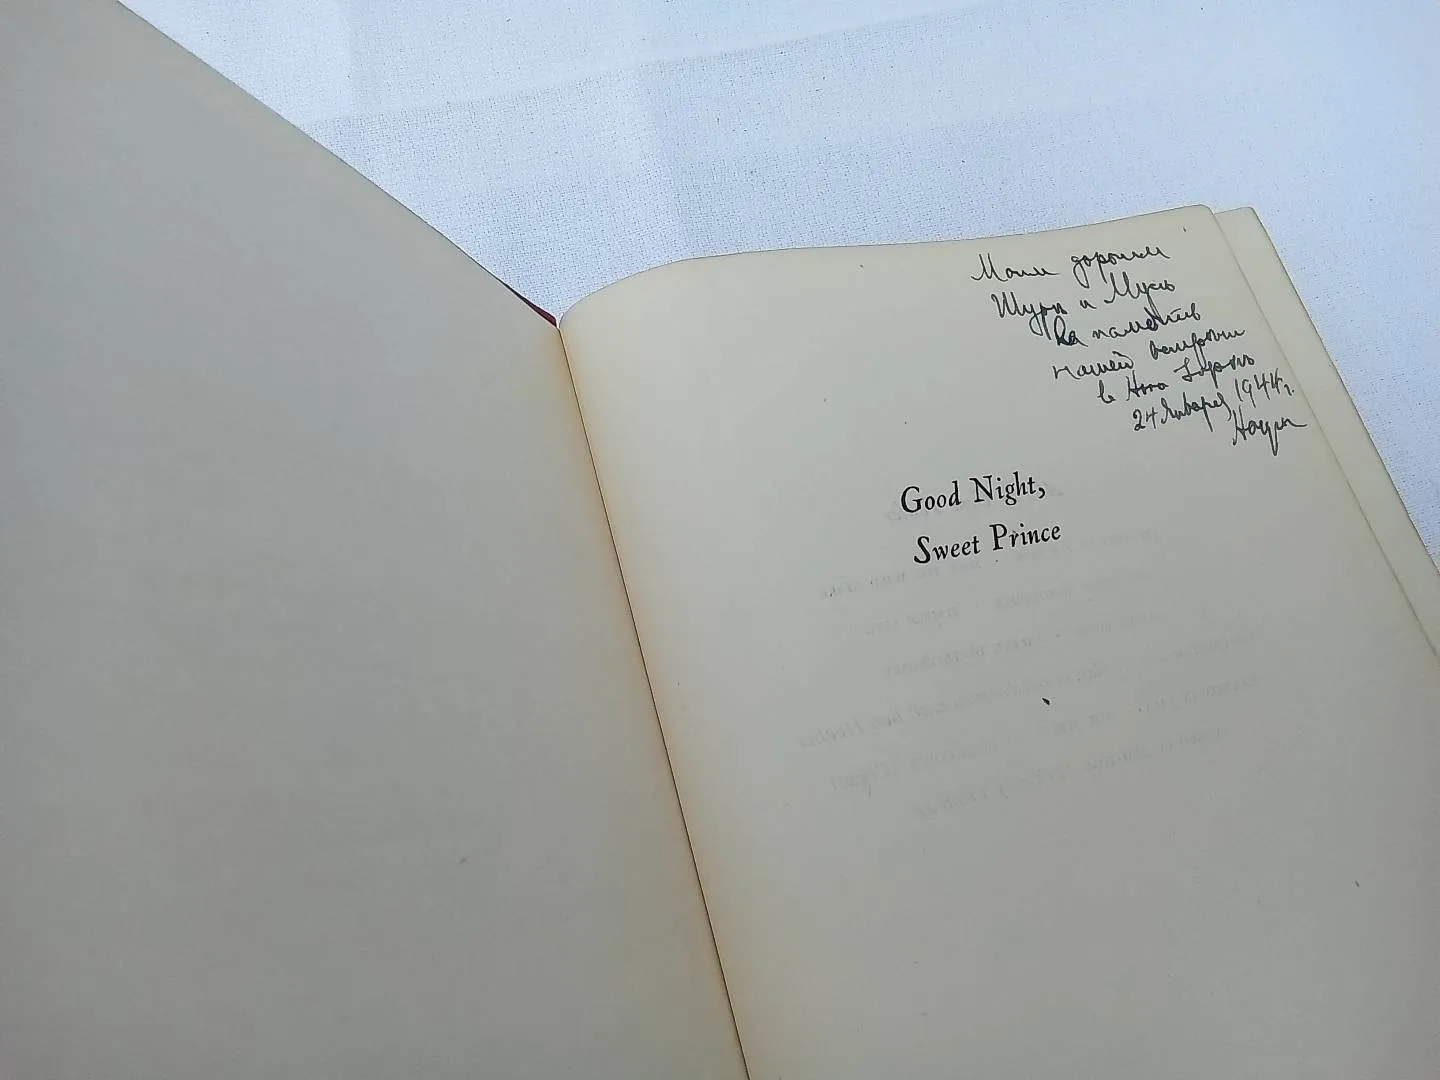 Моим дорогим
Шуре и Мусь
на память
нашей встречи
в Нью Йорке
24 Января 1944 г.
Good Night,
Sweet Prince